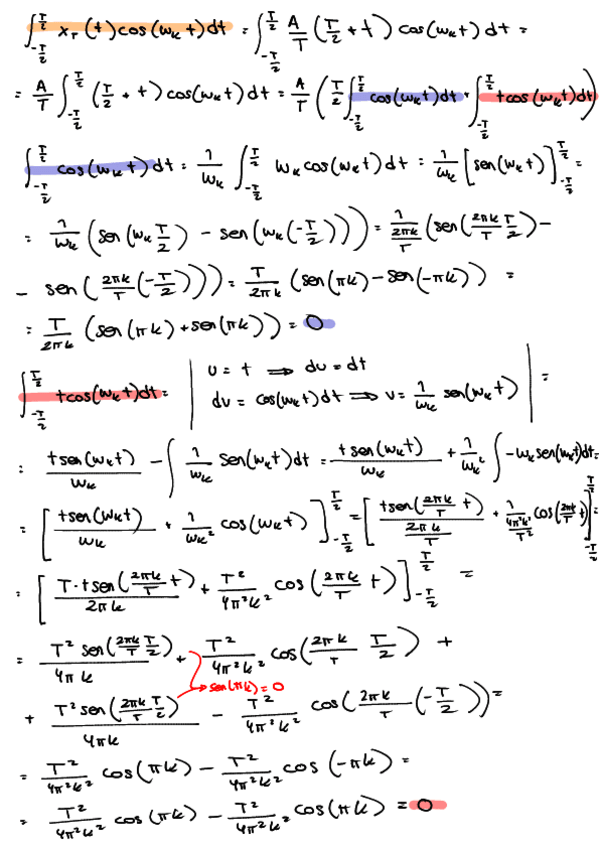 ∫_{-T/2}^{T/2} x_T(t)cos(ω_k t)dt = ∫_{-T/2}^{T/2} A/T (T/2 + t) cos(ω_k t)dt =
= A/T ∫_{-T/2}^{T/2} (T/2 + t) cos(ω_k t)dt = A/T (T/2 ∫_{-T/2}^{T/2} cos(ω_k t)dt + ∫_{-T/2}^{T/2} t cos(ω_k t)dt)
∫_{-T/2}^{T/2} cos(ω_k t)dt = 1/ω_k ∫_{-T/2}^{T/2} ω_k cos(ω_k t)dt = 1/ω_k [sen(ω_k t)]_{-T/2}^{T/2} =
= 1/ω_k (sen(ω_k T/2) - sen(ω_k(-T/2))) = 1/(2πk/T) (sen(2πk/T T/2) -
- sen(2πk/T (-T/2))) = T/2πk (sen(πk) - sen(-πk)) =
= T/2πk (sen(πk) + sen(πk)) = 0
∫_{-T/2}^{T/2} t cos(ω_k t)dt = | u = t ⇒ du = dt
dv = cos(ω_k t)dt ⇒ v = 1/ω_k sen(ω_k t) | =
= t sen(ω_k t)/ω_k - ∫ 1/ω_k sen(ω_k t)dt = t sen(ω_k t)/ω_k + 1/ω_k² ∫ -ω_k sen(ω_k t)dt =
= [t sen(ω_k t)/ω_k + 1/ω_k² cos(ω_k t)]_{-T/2}^{T/2} = [t sen(2πk/T t)/(2πk/T) + 1/(4π²k²/T²) cos(2πk/T t)]_{-T/2}^{T/2} =
= [T·t sen(2πk/T t)/2πk + T²/4π²k² cos(2πk/T t)]_{-T/2}^{T/2} =
= T² sen(2πk/T T/2)/4πk + T²/4π²k² cos(2πk/T T/2) +
sen(πk) = 0
+ T² sen(2πk/T T/2)/4πk - T²/4π²k² cos(2πk/T (-T/2)) =
= T²/4π²k² cos(πk) - T²/4π²k² cos(-πk) =
= T²/4π²k² cos(πk) - T²/4π²k² cos(πk) = 0